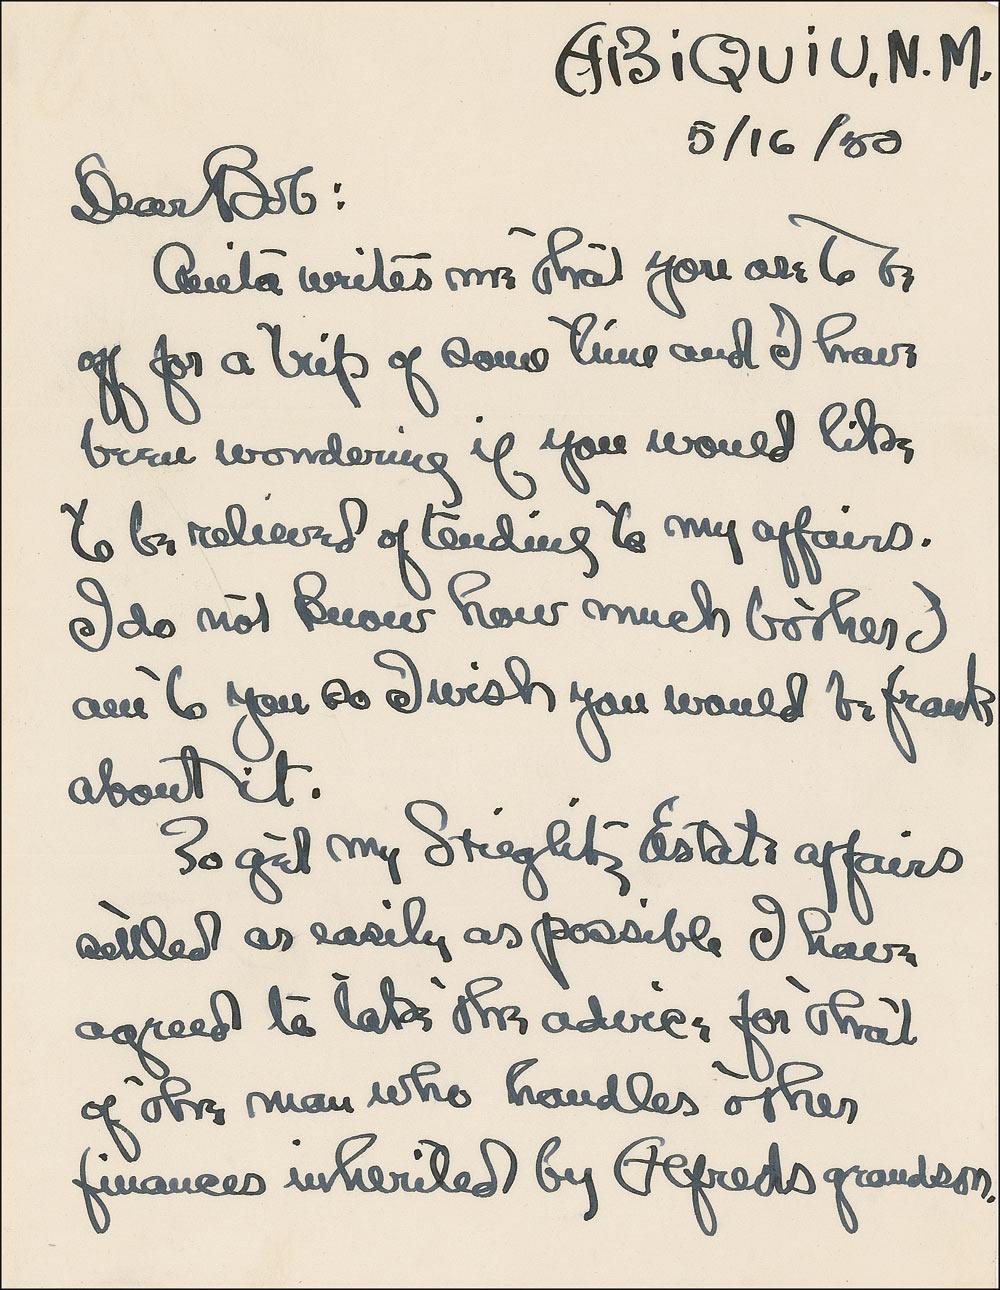 ABiQUiU, N.M.
5/16/50
Dear Bob:
Anita writes me that you are to be
off for a trip of some time and I have
been wondering if you would like
to be relieved of tending to my affairs.
I do not know how much bother I
am to you so I wish you would be frank
about it.
To get my Stieglitz Estate affairs
settled as easily as possible I have
agreed to take the advice for that
of the man who handles other
finances inherited by Alfreds grandson.